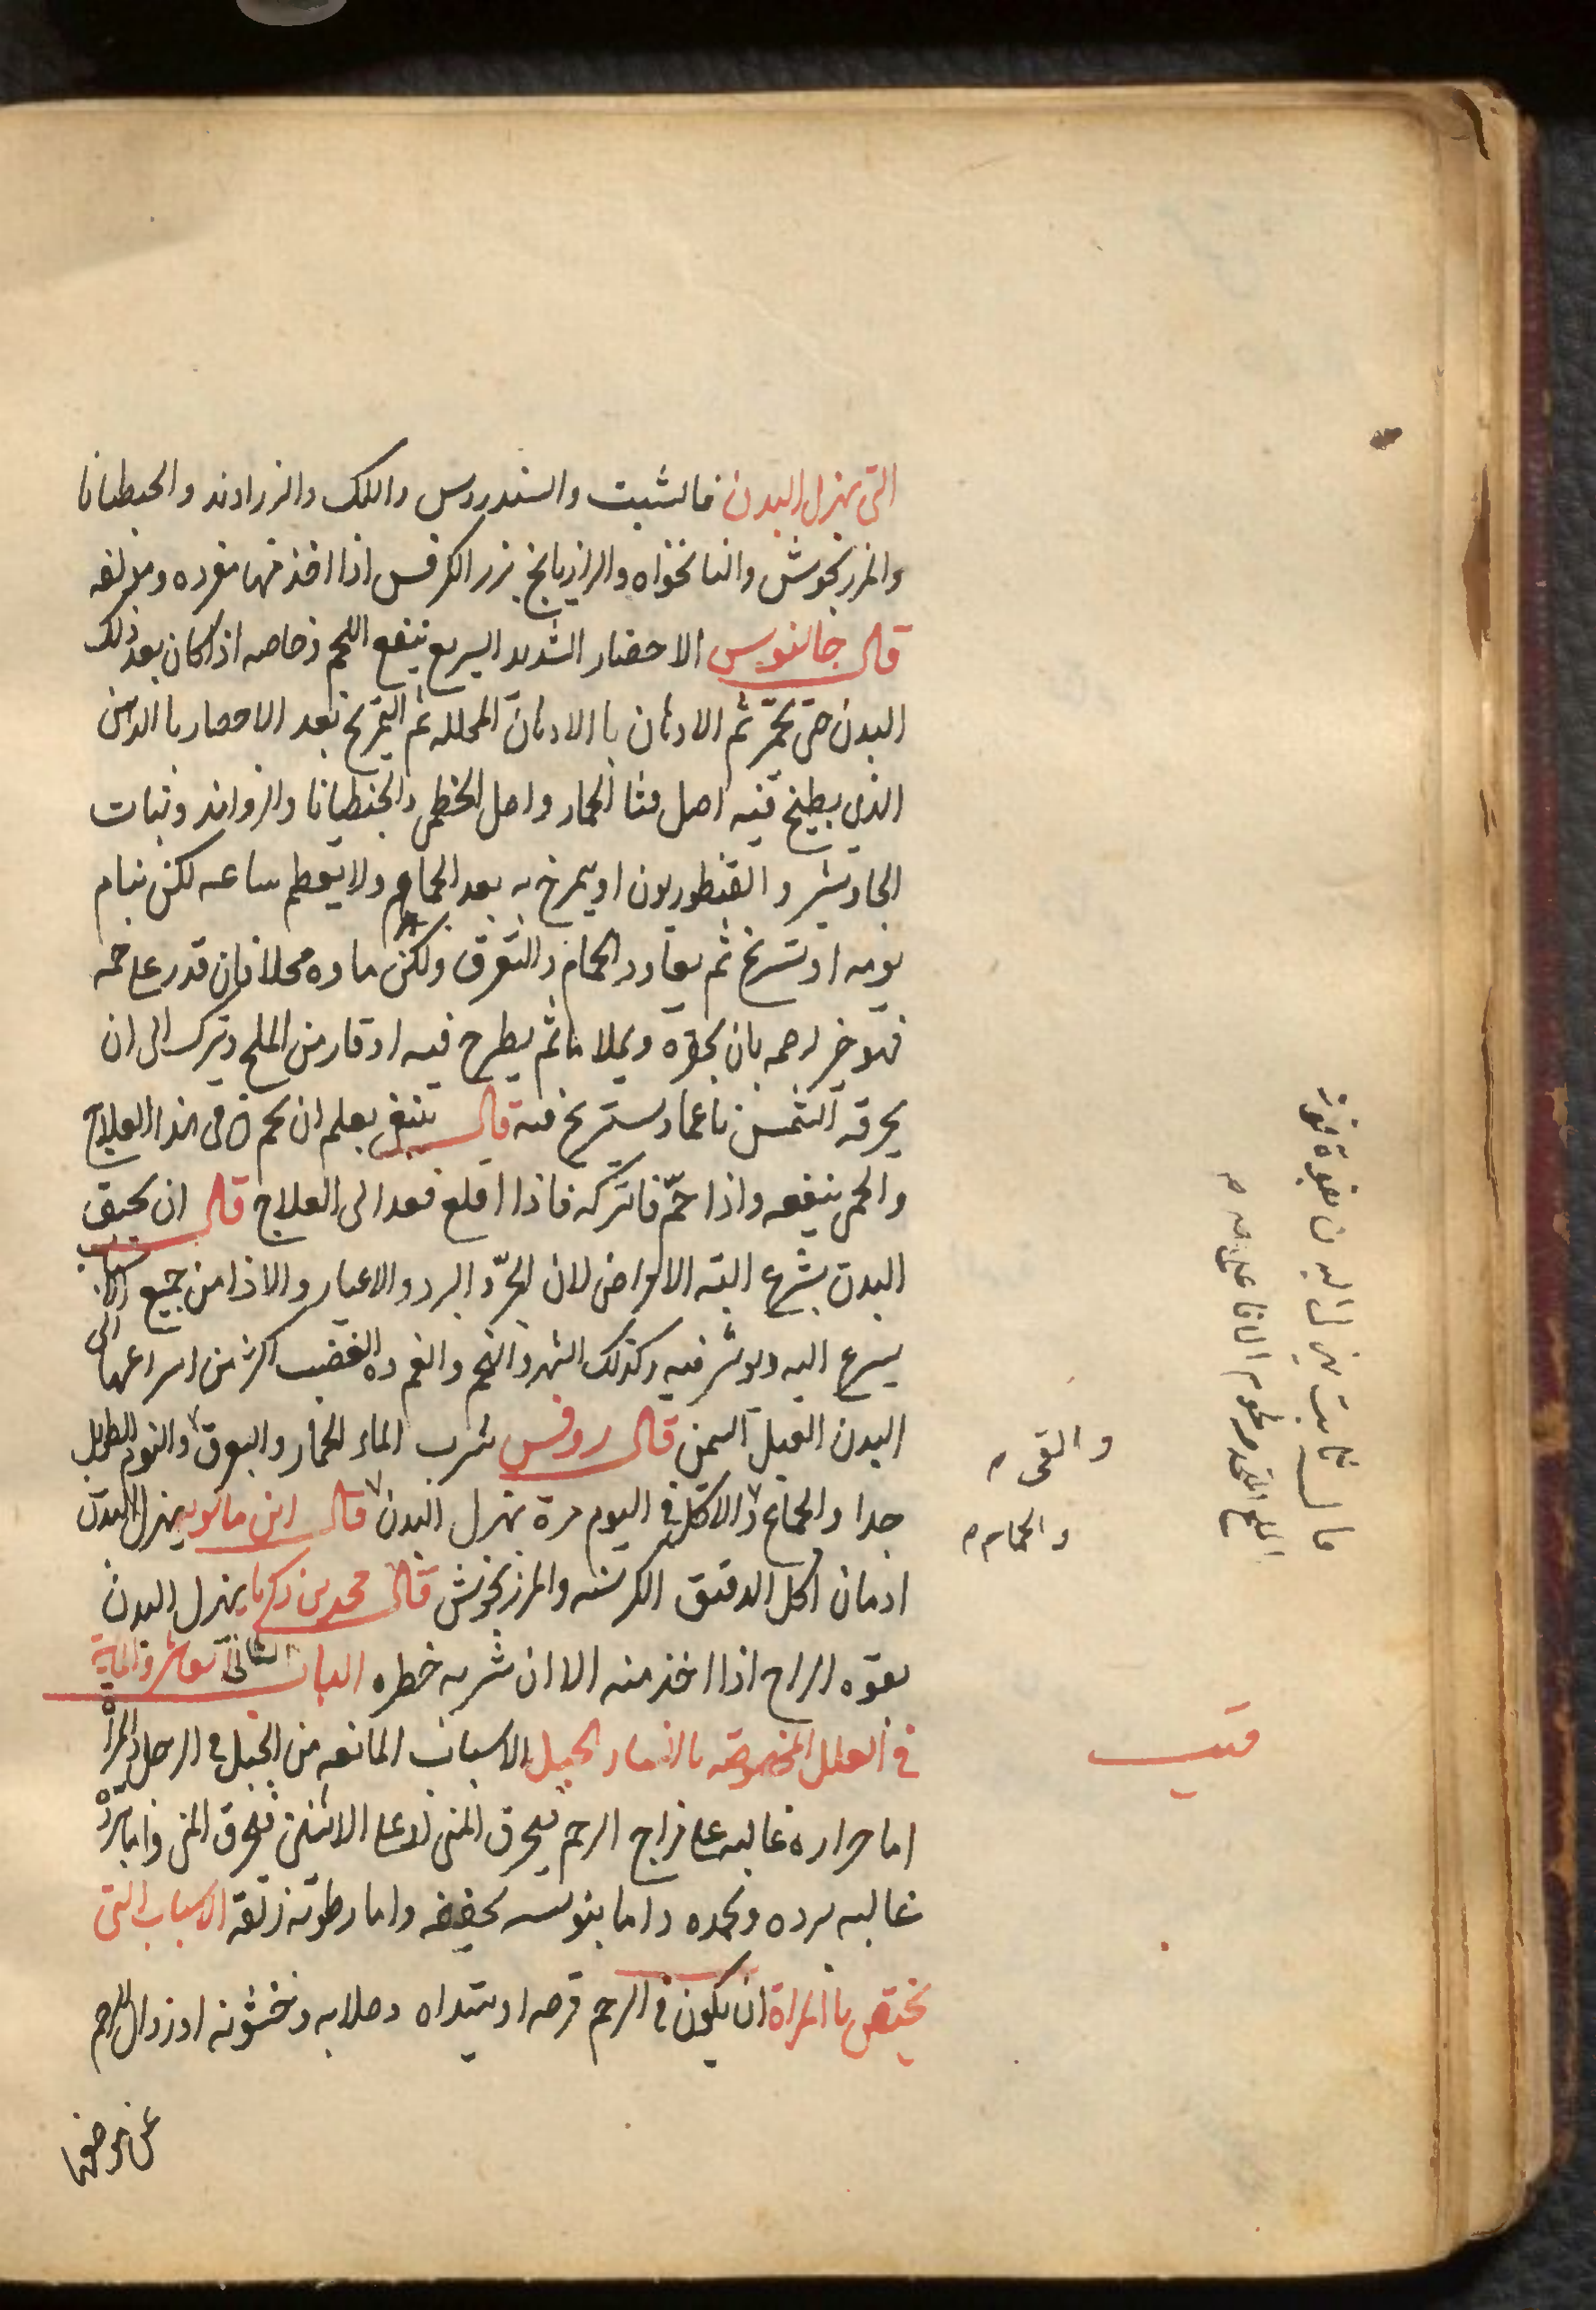 التى يهزل البدن فالشبت والسندروس واللك والزراوند والجنطيانا
والمرزنجوش والنانخواه والرازيانج بزر الكرفس اذا اخذ منها مفرده ومولفه
قال جالنوس الاحضار الشديد السريع ينفع اللحم وخاصه اذا كان بعد ذلك
البدن حتى يحمّر ثم الادهان باالادهان المحلله ثم التمريخ بعد الاحضار باالدهن
الذي يطبخ فيه اصل قثا الحمار واصل الخطمى والجنطيانا والزواند ونبات
الجاوشير والقنطوريون او يمرخ به بعد الحمام ولا يعطم ساعه لكن ينام
نومه او تسريح ثم يعاود الحمام والتعرق ولكن ماوه محللا فان قدر على حمه
يطرح فيه اوقار من الملح ويترك الى ان
يحرقه الشمس يستريح فيه قال ينبغى يعلم ان فى هذا العلاج
والحمى ينفعه واذا حمّ فاتركه فاذا اقلع فعد الى العلاج قال ان
البدن يسرع اليه الامراض لان الحرّ والبرد والاعيا والاذا من جميع الاسباب
يسرع اليه ويوثر فيه وكذلك السهر والهم والغم والغضب اكثر من اسراعها الى
البدن العبل السمين قال روفس شرب الماء الحار والبورق والنوم الطويل
جدا والجماع والاكل فى اليوم مرة يهزل البدن قال ابن ماسويه يهزل البدن
ادمان اكل الدقيق الكرسنه والمرزنجوش قال محمد بن زكريا يهزل البدن
بقوه اذا اخذ منه الا ان شربه خطره الباب الثانى عشر والمايه
فى العلل المخصوصه بالنساء الحبل الاسباب المانعه من الحبل فى الرجل والمراة
اما حراره غالبه على مزاج الرحم فيحرق المنى او على الانثيين فيحرق المنى واما برده
غالبه يبرده ويجمده واما يبوسه يجففه واما رطوبه زلقه الاسباب التى
يختص باالمراة ان يكون فى الرحم قرحه او سده وصلابه وخشونه او زوال الرحم
عن موضعها
والقى
والحمام
قال ثابت يهزل البدن
قيب